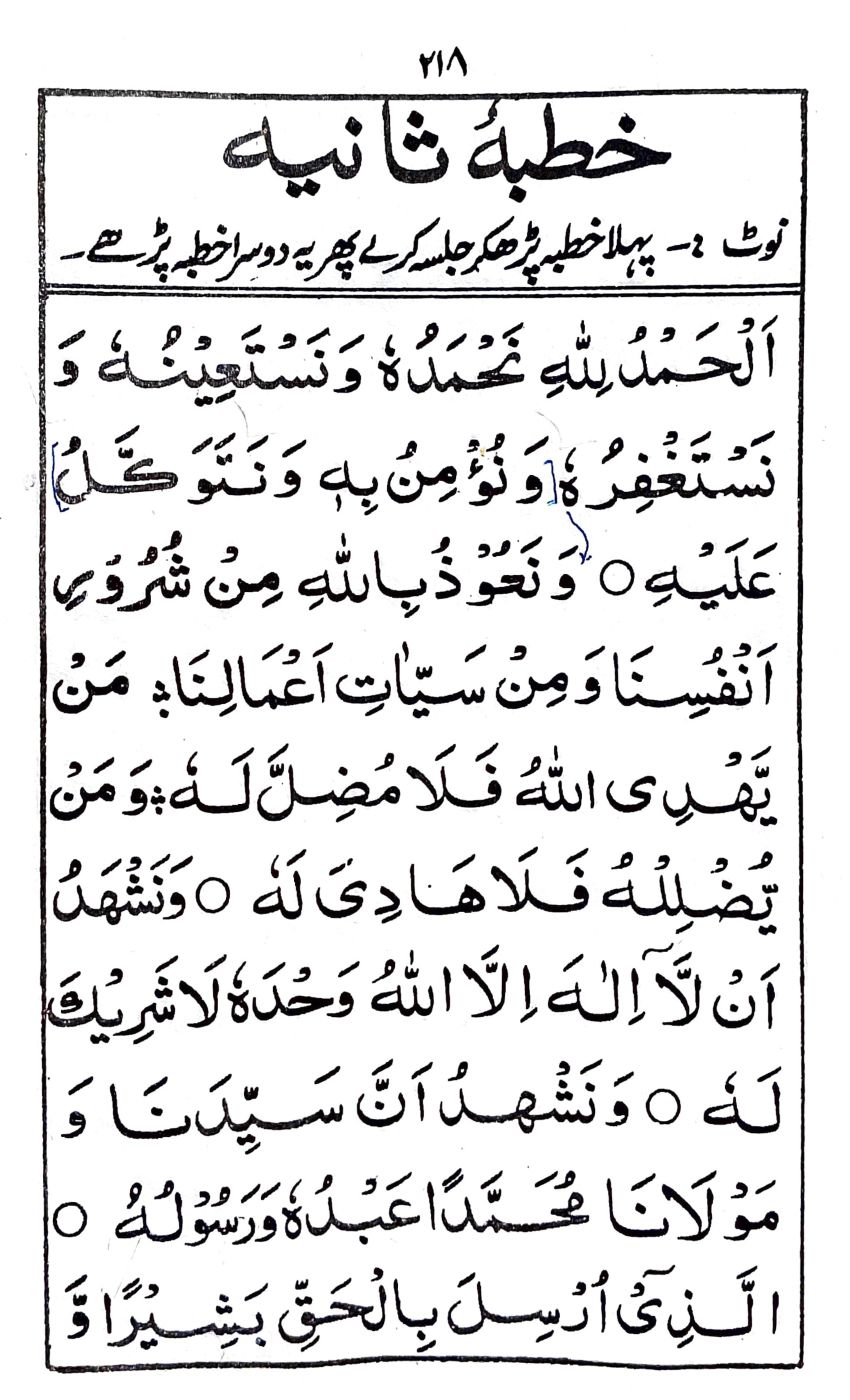 ۲۱۸
خطبۂ ثانیہ
نوٹ :- پہلا خطبہ پڑھکر جلسہ کرلے پھر یہ دوسرا خطبہ پڑھے۔
اَلْحَمْدُ لِلّٰهِ نَحْمَدُهٗ وَنَسْتَعِيْنُهٗ وَ
نَسْتَغْفِرُهٗ [وَنُؤْمِنُ بِهٖ وَنَتَوَكَّلُ]
عَلَيْهِ ○ وَنَعُوْذُ بِاللّٰهِ مِنْ شُرُوْرِ
اَنْفُسِنَا وَمِنْ سَيِّاٰتِ اَعْمَالِنَا ؞ مَنْ
يَّهْدِى اللّٰهُ فَلَا مُضِلَّ لَهٗ ؞ وَمَنْ
يُّضْلِلْهُ فَلَا هَادِىَ لَهٗ ○ وَنَشْهَدُ
اَنْ لَّآ اِلٰهَ اِلَّا اللّٰهُ وَحْدَهٗ لَا شَرِيْكَ
لَهٗ ○ وَنَشْهدُ اَنَّ سَيِّدَنَا وَ
مَوْلَانَا مُحَمَّدًا عَبْدُهٗ وَرَسُوْلُهُ ○
الَّذِىْٓ اُرْسِلَ بِالْحَقِّ بَشِيْرًا وَّ